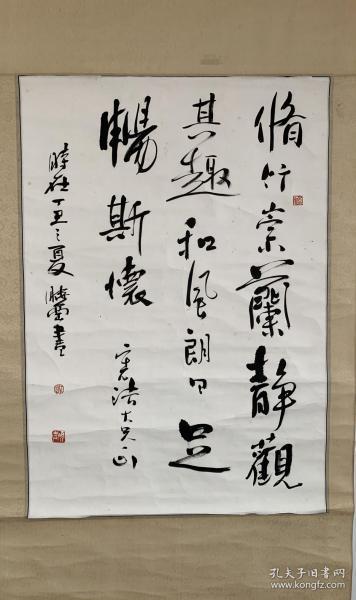 脩竹崇蘭靜觀
其趣和風朗日足
暢斯懷
時在丁丑之夏 書
孔夫子旧书网
www.kongfz.com